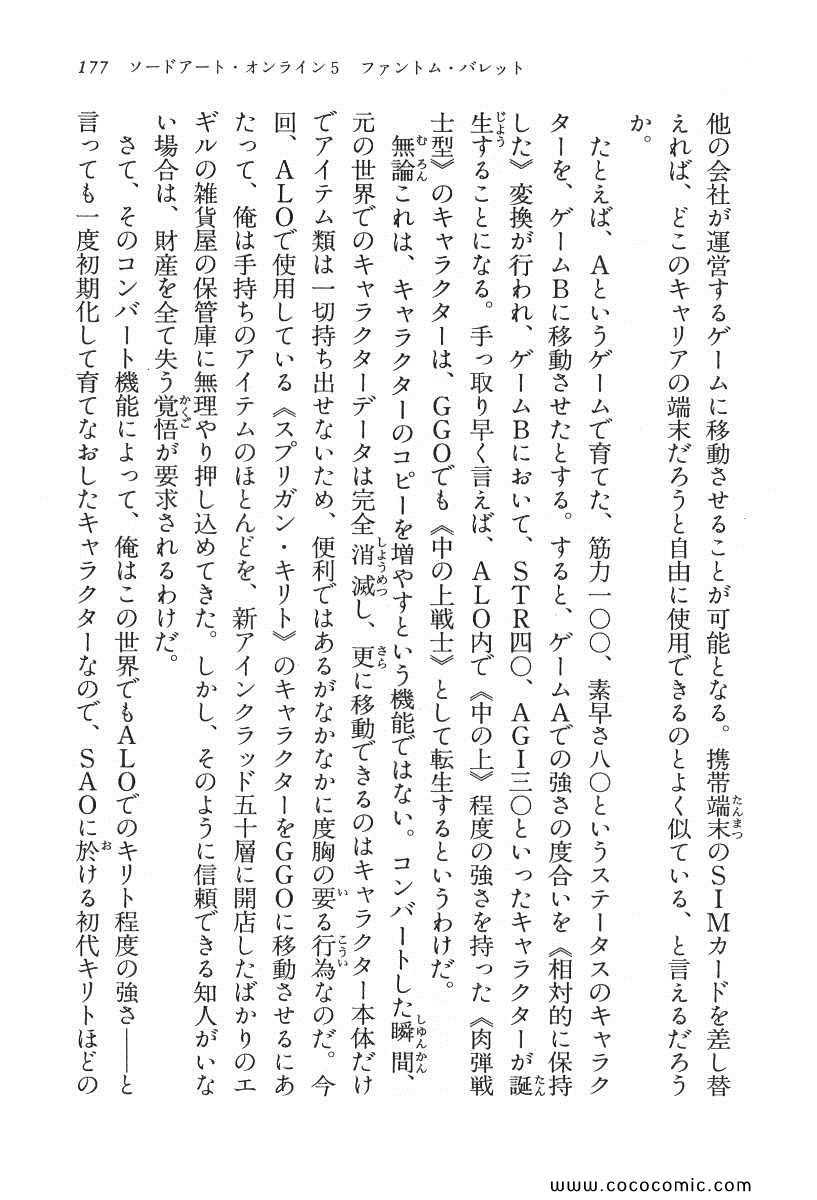 177 ソードアート・オンライン5 ファントム・バレット
他の会社が運営するゲームに移動させることが可能となる。携帯端末のSIMカードを差し替
えれば、どこのキャリアの端末だろうと自由に使用できるのとよく似ている、と言えるだろう
か。
たとえば、Aというゲームで育てた、筋力一〇〇、素早さ八〇というステータスのキャラク
ターを、ゲームBに移動させたとする。すると、ゲームAでの強さの度合いを《相対的に保持
した》変換が行われ、ゲームBにおいて、STR四〇、AGI三〇といったキャラクターが誕
生することになる。手っ取り早く言えば、ALO内で《中の上》程度の強さを持った《肉弾戦
士型》のキャラクターは、GGOでも《中の上戦士》として転生するというわけだ。
無論これは、キャラクターのコピーを増やすという機能ではない。コンバートした瞬間、
元の世界でのキャラクターデータは完全消滅し、更に移動できるのはキャラクター本体だけ
でアイテム類は一切持ち出せないため、便利ではあるがなかなかに度胸の要る行為なのだ。今
回、ALOで使用している《スプリガン・キリト》のキャラクターをGGOに移動させるにあ
たって、俺は手持ちのアイテムのほとんどを、新アインクラッド五十層に開店したばかりのエ
ギルの雑貨屋の保管庫に無理やり押し込めてきた。しかし、そのように信頼できる知人がいな
い場合は、財産を全て失う覚悟が要求されるわけだ。
さて、そのコンバート機能によって、俺はこの世界でもALOでのキリト程度の強さ——と
言っても一度初期化して育てなおしたキャラクターなので、SAOに於ける初代キリトほどの
www.cococomic.com